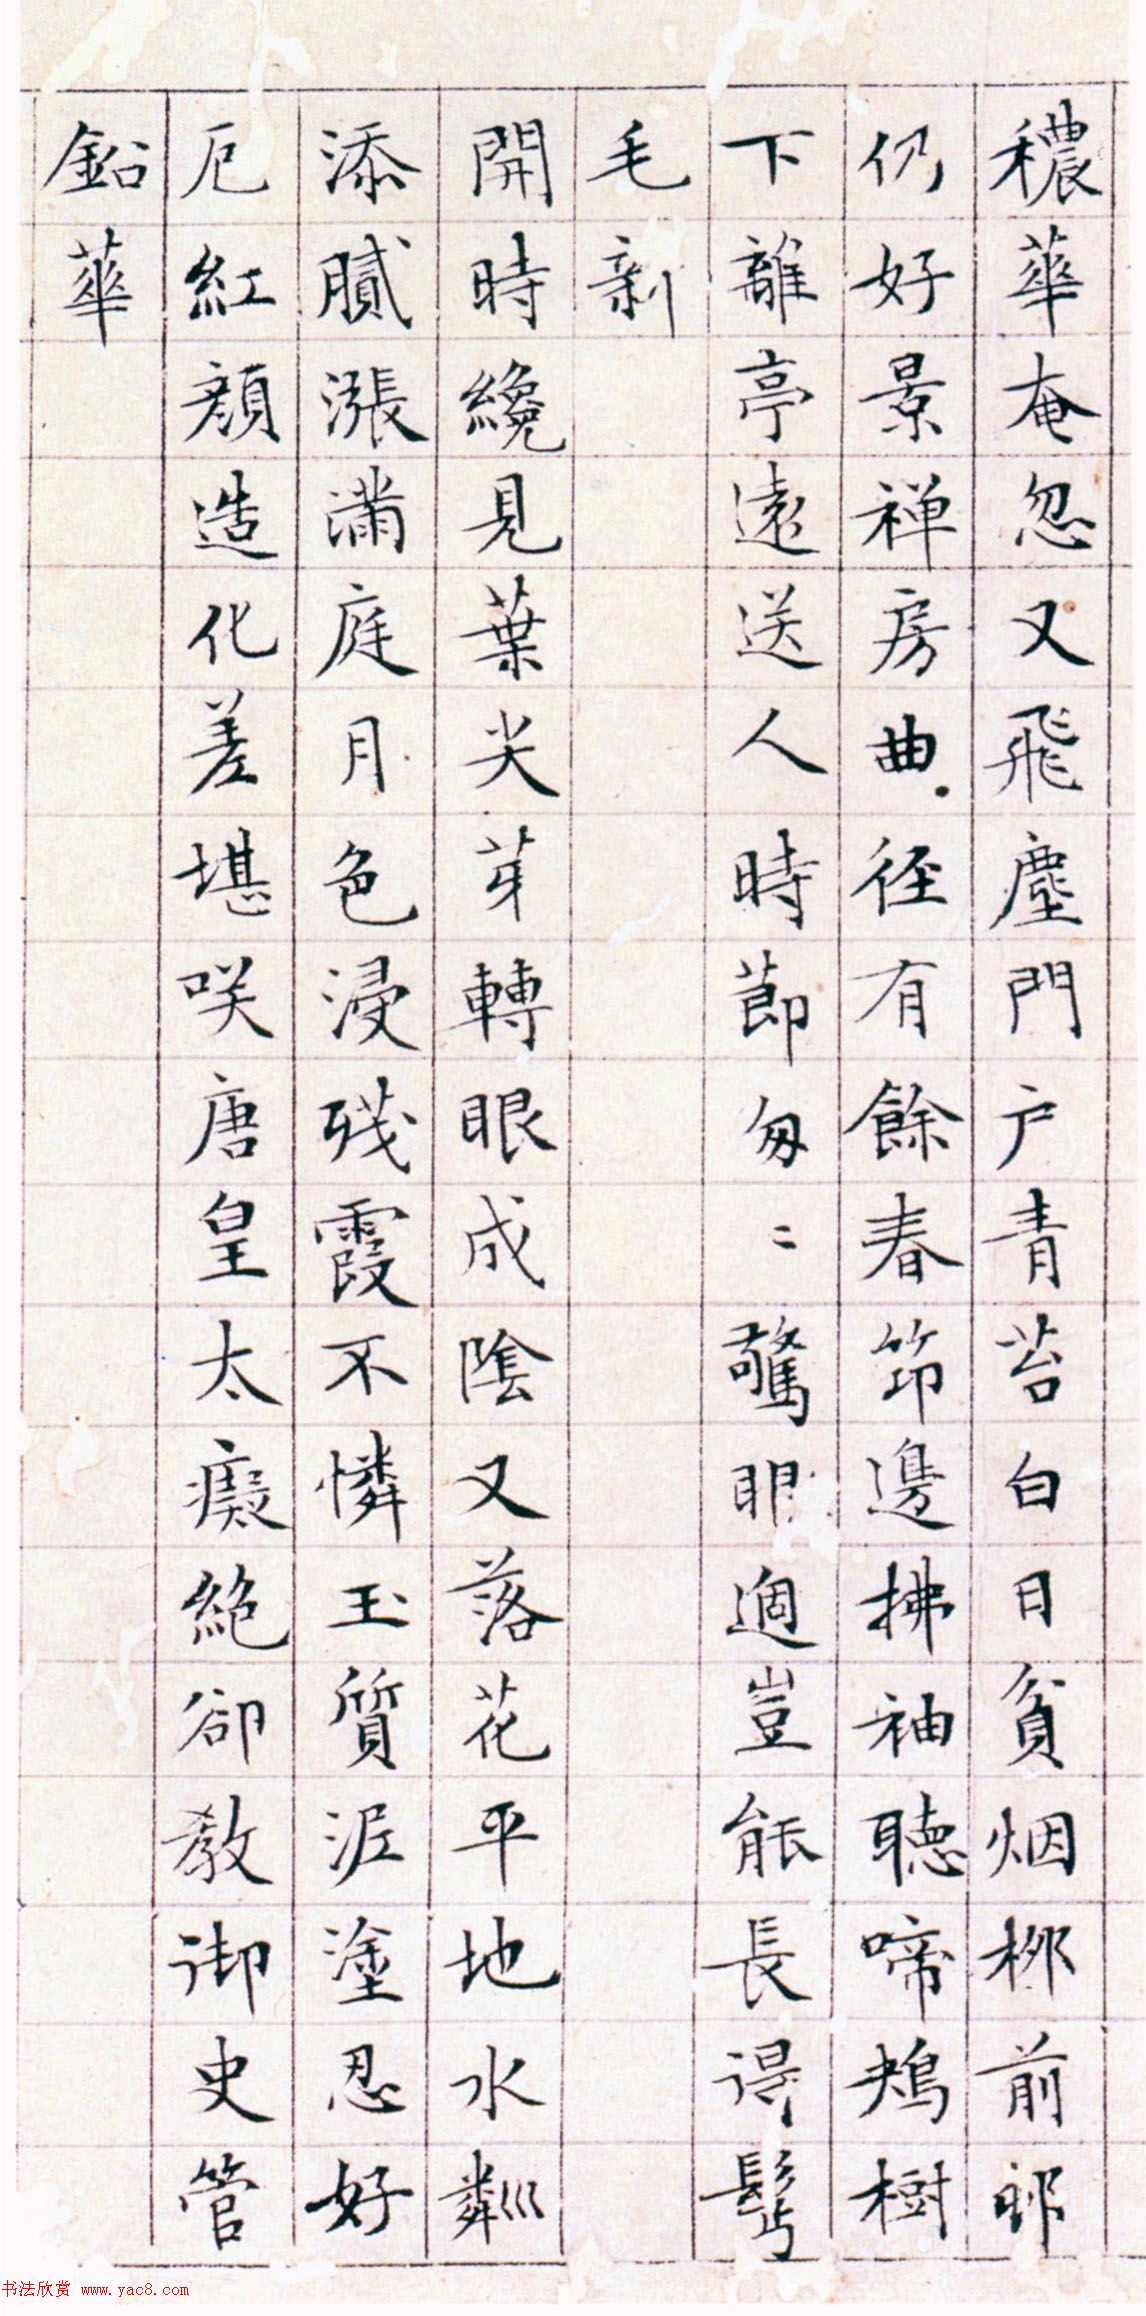 穠華奄忽又飛塵門戶青苔白日貧烟柳前郎
仍好景禅房曲徑有餘春筇邊拂袖聽啼鴂樹
下離亭遠送人時節匆〻驚眼過豈能長得鬢
毛新
開時纔見葉尖芽轉眼成陰又落花平地水粼
添膩漲滿庭月色浸殘霞不憐玉質泥塗忍好
厄紅顏造化差堪咲唐皇太癡絕卻教御史管
鉛華
书法欣赏 www.yac8.com